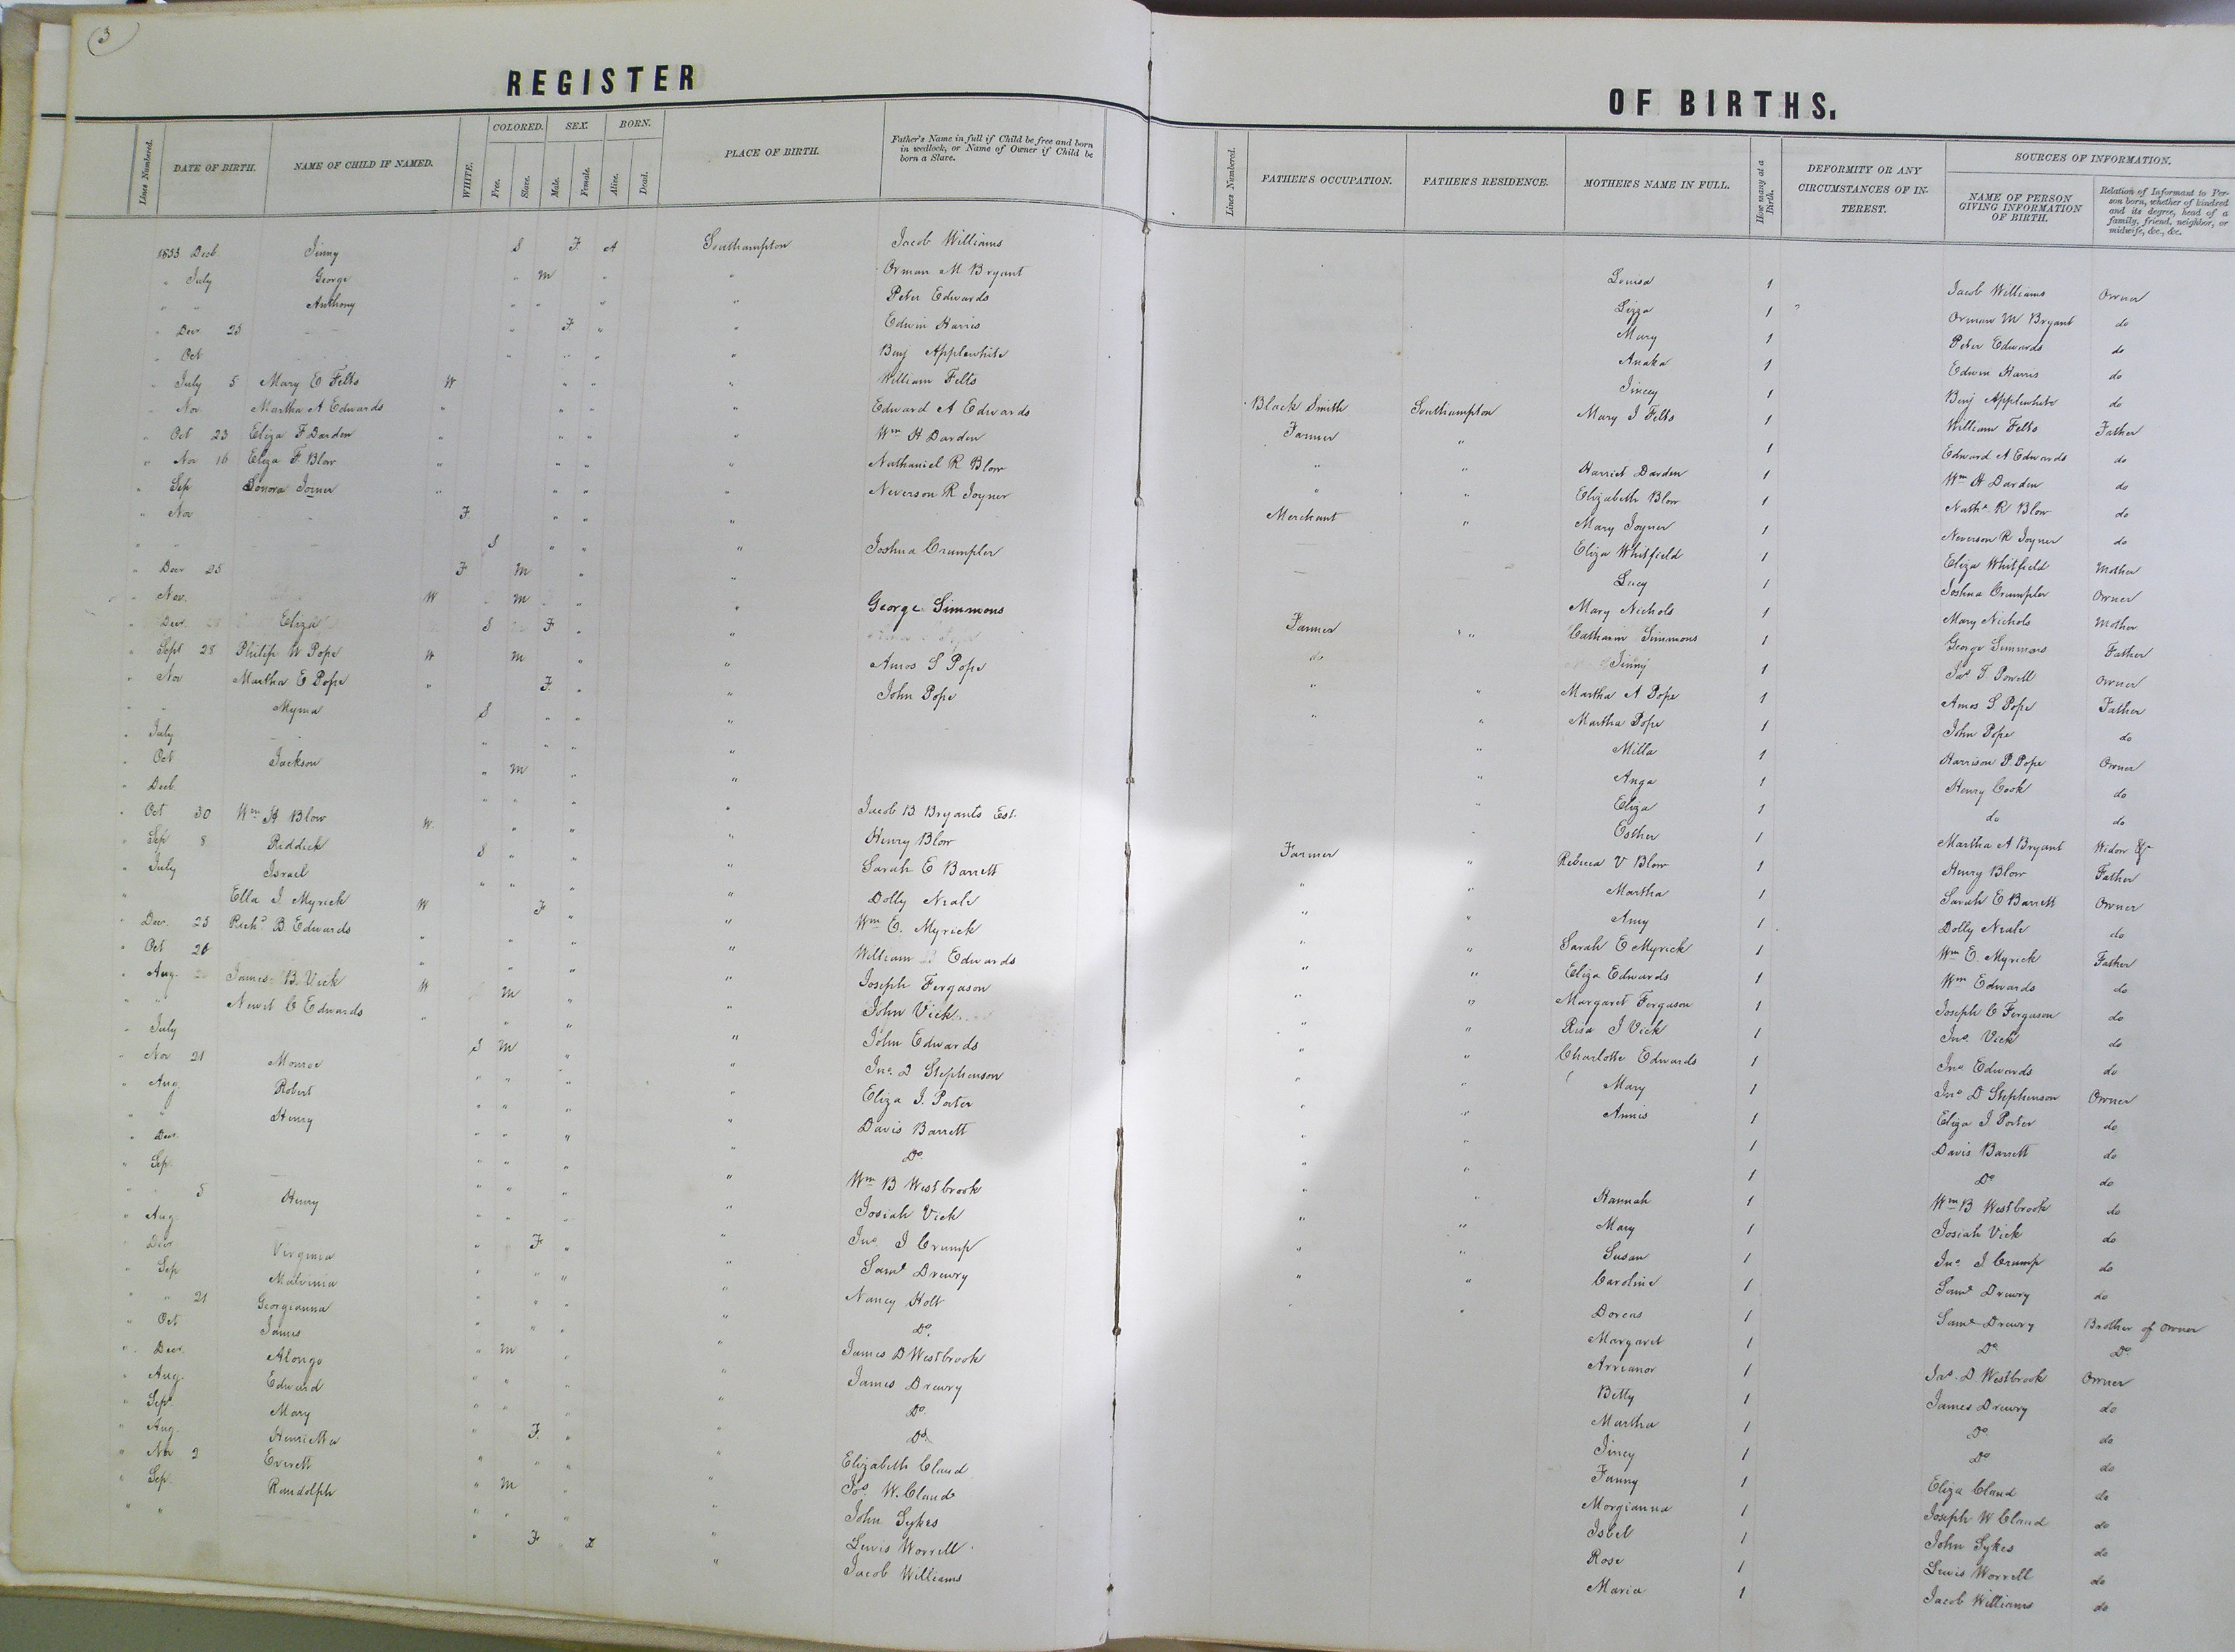 3
REGISTER
Lines Numbered. DATE OF BIRTH. NAME OF CHILD IF NAMED. WHITE. COLORED. Free. Slave. SEX. Male. Female. BORN. Alive. Dead. PLACE OF BIRTH. Father's Name in full if Child be free and born in wedlock, or Name of Owner if Child be born a Slave.
1853 Decb. Jinny S F A Southampton Jacob Williams
" July George " m " " Orman M Bryant
" " Anthony " " " " Peter Edwards
" Decr 25 " F " " Edwin Harris
" Oct " " " " Benj Applewhite
" July 5 Mary E Felts W " " " William Felts
" Nov. Martha A Edwards " " " " Edward A Edwards
" Oct 23 Eliza F Darden " " " " Wm H Darden
" Nov 16 Eliza F. Blow " " " " Nathaniel R Blow
" Sep Joiner " " " " Neverson R Joyner
" Nov F " " "
" " S " " " Joshua Crumpler
" Decr 25 F m " "
" Nov. W m " " George Simmons
" Decr. Eliza S F " "
" Sept 28 Philip W Pope W m " " Amos S Pope
" Nov Martha E Pope " F " " John Pope
" " Myma S " " "
" July " " " "
" Oct Jackson " m " "
" Decb. " " " " Jacob B Bryants Est.
" Oct 30 Wm H Blow W. " " " Henry Blow
" Sep 8 Riddick S " " " Sarah E Barrett
" July Israel " " " " Dolly Neale
" Ella J. Myrick W F " " Wm E. Myrick
" Decr. 25 Richd B. Edwards " " " " William Edwards
" Oct 26 " " " " Joseph Ferguson
" Aug. James B. Vick W m " " John Vick
" " Newit C Edwards " " " " John Edwards
" July S m " " Jno. D Stephenson
" Nov 21 Monroe " " " " Eliza J. Porter
" Aug. Robert " " " " Davis Barrett
" " Henry " " " " Do.
" Decr. " " " " Wm B Westbrook
" Sep. " " " " Josiah Vick
" " 5 Henry " " " " Jno J Crump
" Aug " F " " Saml Drewry
" Decr Virginia " " " " Nancy Holt
" Sep Malvinia " " " " Do.
" " 21 Georgianna " " " " James D Westbrook
" Oct James " m " " James Drewry
" Decr. Alonzo " " " " Do.
" Aug. Edward " " " " Do.
" Sep. Mary " F. " " Elizabeth Claud
" Aug. Henrietta " " " " Jos. W. Claud
" Nov 2 Everett " m " " John Sykes
" Sep. Randolph " " " " Lewis Worrell
" " " F " " Jacob Williams
OF BIRTHS.
Lines Numbered. FATHER'S OCCUPATION. FATHER'S RESIDENCE. MOTHER'S NAME IN FULL. How many at a Birth. DEFORMITY OR ANY CIRCUMSTANCES OF INTEREST. SOURCES OF INFORMATION. NAME OF PERSON GIVING INFORMATION OF BIRTH. Relation of Informant to Person born, whether of kindred and its degree, head of a family, friend, neighbor, or midwife, &c., &c.
Louisa 1 Jacob Williams Owner
Lizza 1 " Orman M Bryant do
Mary 1 Peter Edwards do
Anaka 1 Edwin Harris do
Jincey 1 Benj Applewhite do
Black Smith Southampton Mary J Felts 1 William Felts Father
Farmer " 1 Edward A Edwards do
" " Harriet Darden 1 Wm H Darden do
" " Elizabeth Blow 1 Nathl R Blow do
Merchant " Mary Joyner 1 Neverson R Joyner do
Eliza Whitfield 1 Eliza Whitfield Mother
Lucy 1 Joshua Crumpler Owner
Mary Nichols 1 Mary Nichols Mother
Farmer " " Catharin Simmons 1 George Simmons Father
do Jinny 1 Jas T. Powell Owner
" " Martha A Pope 1 Amos S Pope Father
" " Martha Pope 1 John Pope do
" Milla 1 Harrison P. Pope Owner
" Anga 1 Henry Cook do
" Eliza 1 do do
" Esther 1 Martha A Bryant Widow &c
Farmer " Rebecca V Blow 1 Henry Blow Father
" " Martha 1 Sarah E Barrett Owner
" " Amy 1 Dolly Neale do
" " Sarah E Myrick 1 Wm E. Myrick Father
" " Eliza Edwards 1 Wm Edwards do
" " Margaret Ferguson 1 Joseph C Ferguson do
" " Risa J Vick 1 Jno. Vick do
" " Charlotte Edwards 1 Jno Edwards do
" " Mary 1 Jno D Stephenson Owner
" " Annis 1 Eliza J Porter do
" " 1 Davis Barrett do
" " 1 Do do
" " Hannah 1 Wm B Westbrook do
" " Mary 1 Josiah Vick do
" " Susan 1 Jno. J Crump do
" " Caroline 1 Saml Drewry do
" " Dorcas 1 Saml Drewry Brother of owner
Margaret 1 Do. Do.
Arreanor 1 Jas. D. Westbrook Owner
Betty 1 James Drewry do
Martha 1 Do do
Jincy 1 Do do
Fanny 1 Eliza Claud do
Morgianna 1 Joseph W Claud do
Isbel 1 John Sykes do
Rose 1 Lewis Worrell do
Maria 1 Jacob Williams do